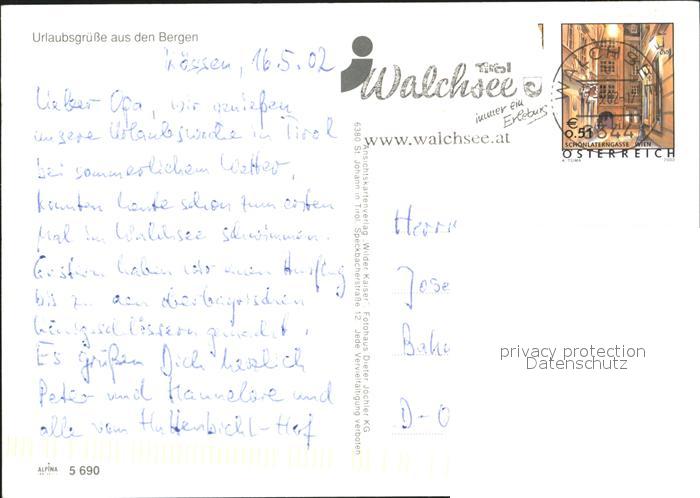 Urlaubsgrüße aus den Bergen
Kössen, 16.5.02
Lieber Opa, wir genießen
unsere Urlaubswoche in Tirol
bei sommerlichem Wetter,
konnten heute schon zum ersten
Mal im Walchsee schwimmen.
Gestern haben wir einen Ausflug
bis zu den oberbayrischen
Königsschlössern gemacht.
Es grüßen Dich herzlich
Peter und Hannelore und
alle vom Huttenbichl-Hof
ALPINA
5 690
Ansichtskartenverlag Wilder Kaiser Fotohaus Dieter Jöchler KG
6380 St. Johann in Tirol, Speckbacherstraße 12 Jede Vervielfältigung verboten
Tirol
Walchsee
immer ein
Erlebnis
www.walchsee.at
WALCHSEE
€
0,51
SCHÖNLATERNGASSE WIEN
ÖSTERREICH
A. TUMA 2002
Herrn
Jose
D-O
privacy protection
Datenschutz